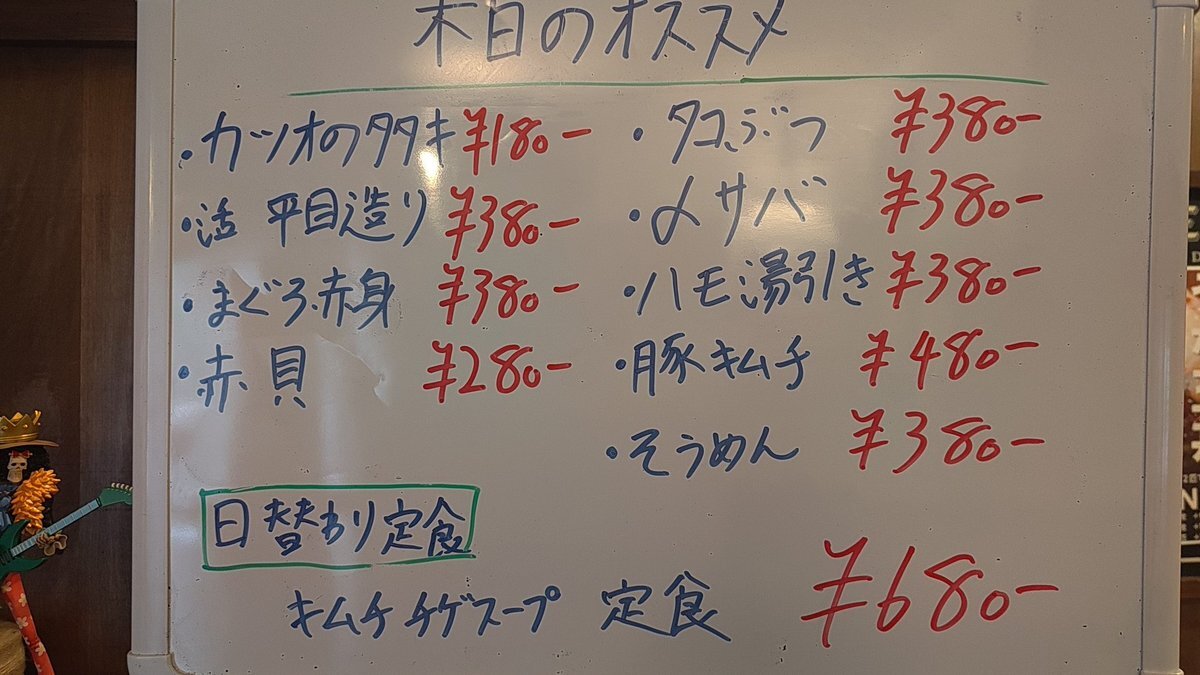 本日のオススメ
・カツオのタタキ ¥180-
・活 平目造り ¥380-
・まぐろ赤身 ¥380-
・赤貝 ¥280-
・タコぶつ ¥380-
・〆サバ ¥380-
・ハモ湯引き ¥380-
・豚キムチ ¥480-
・そうめん ¥380-
日替わり定食
キムチチゲスープ 定食 ¥680-